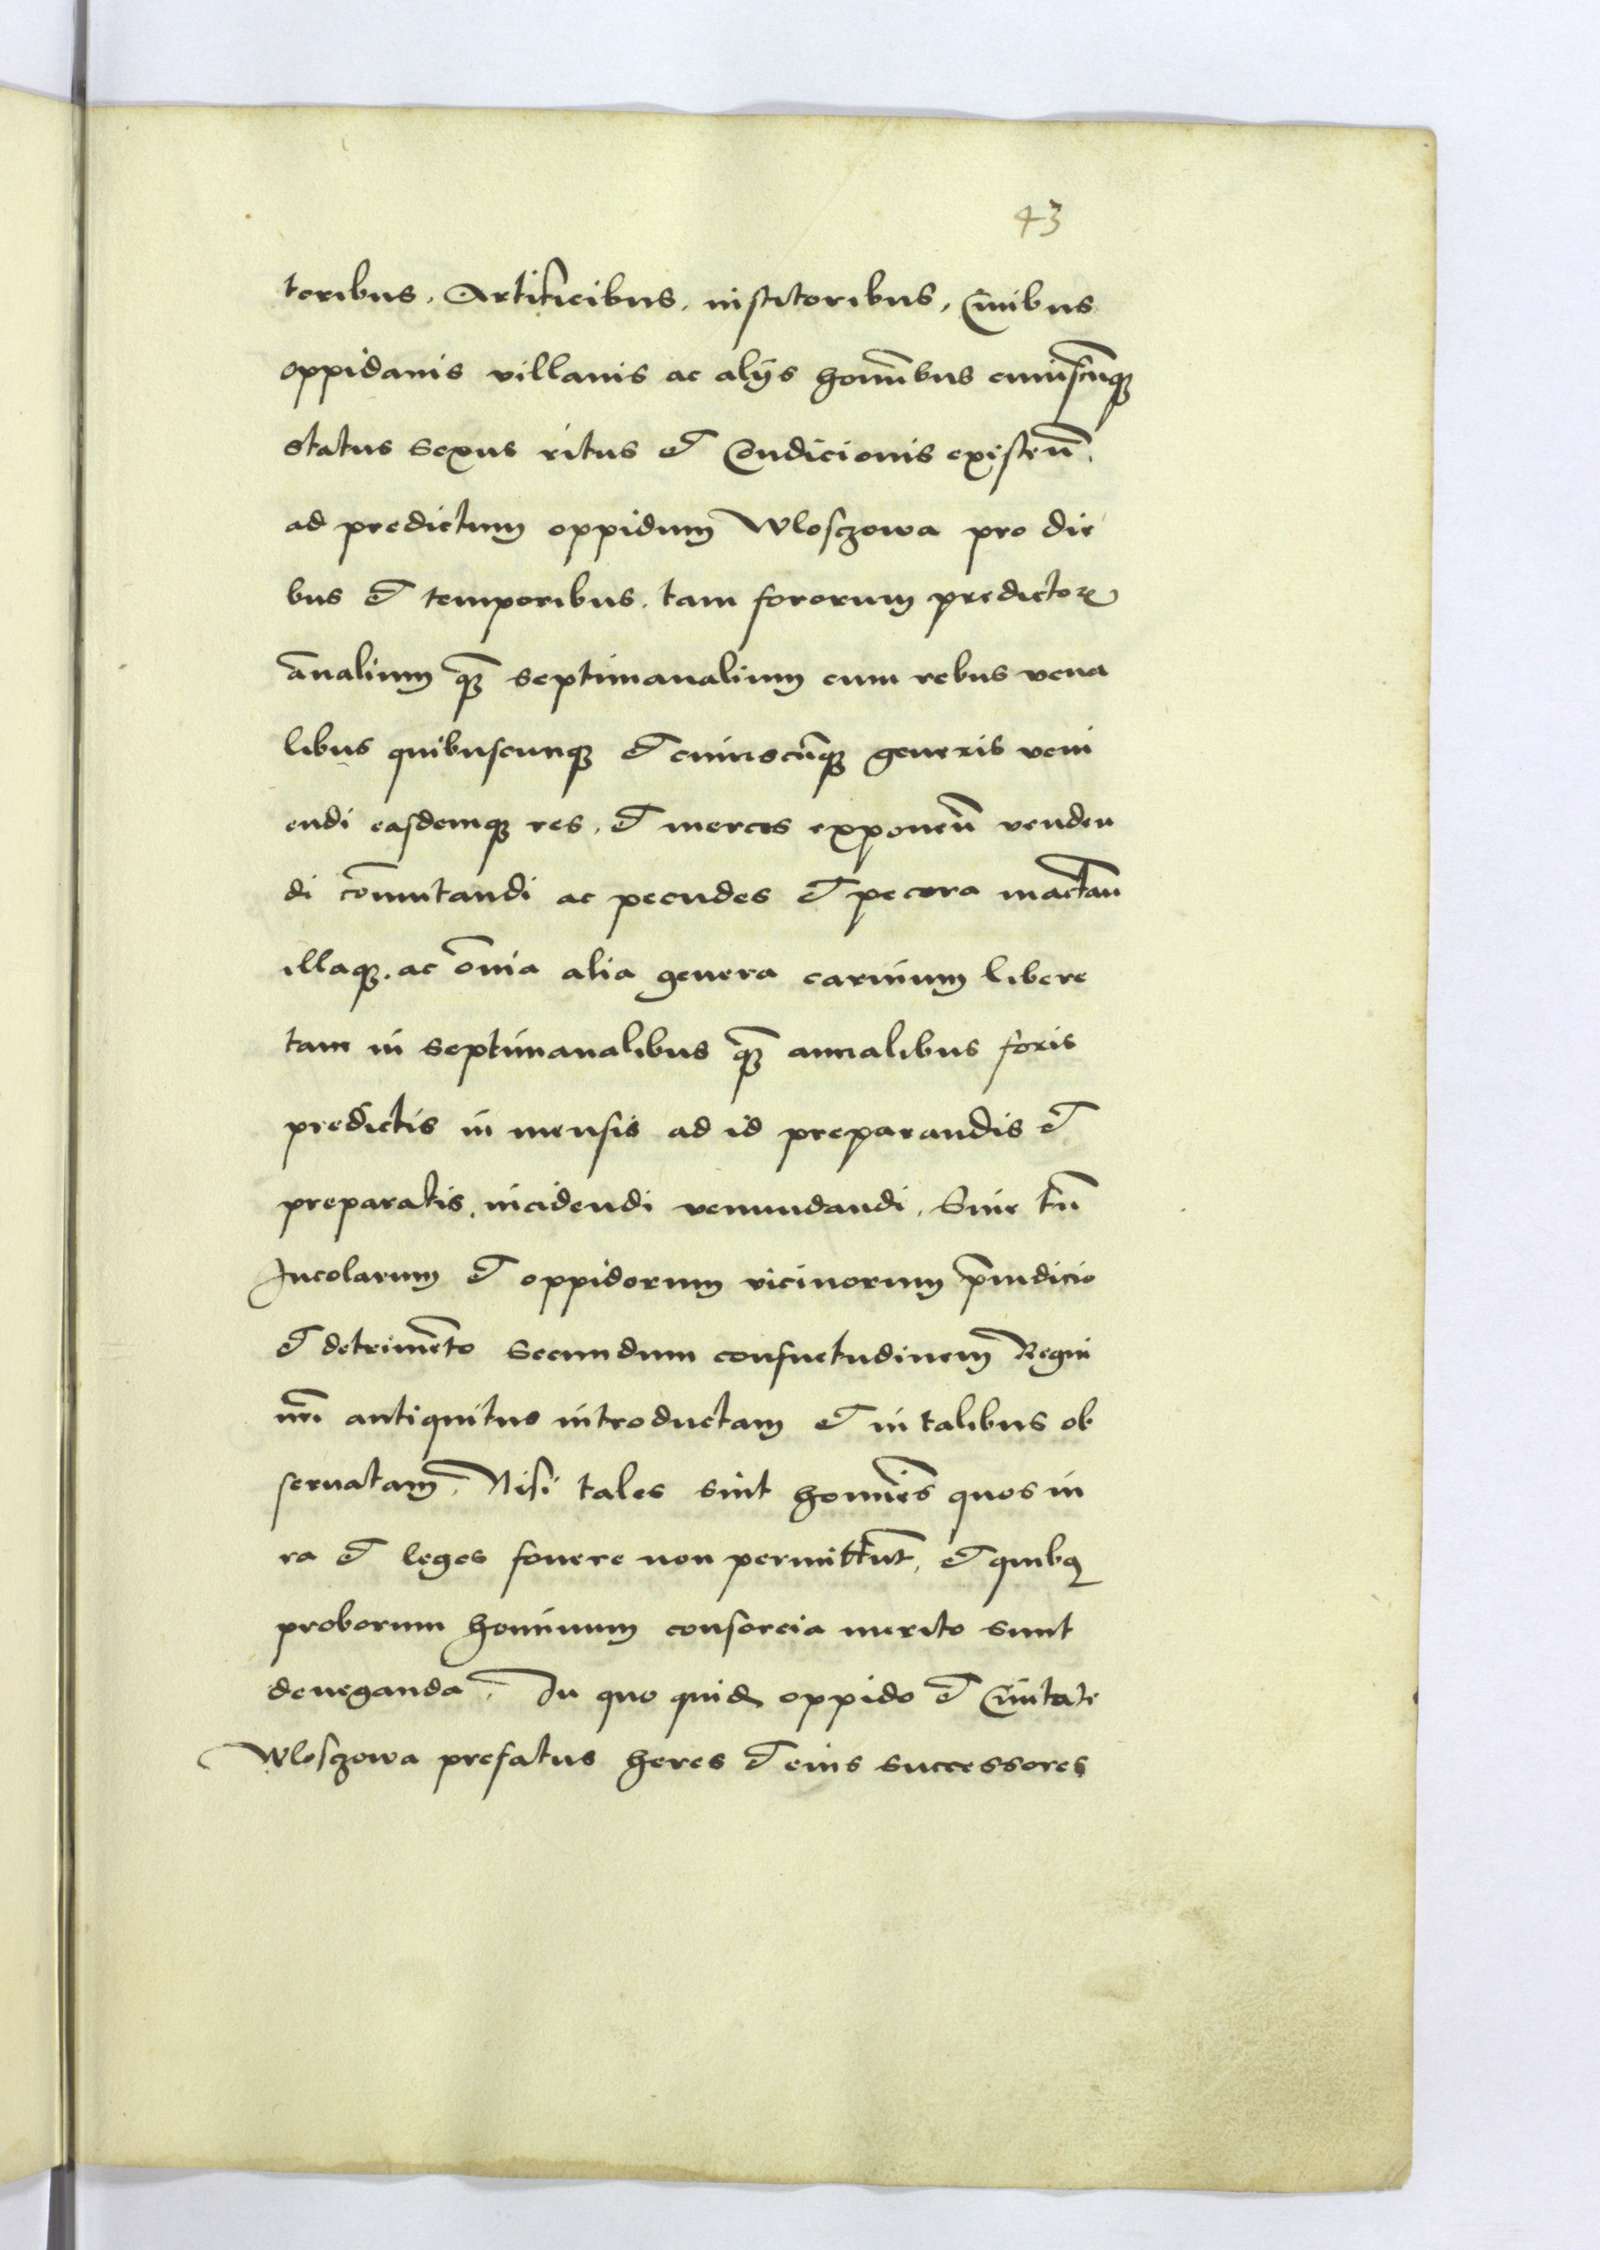 43
toribus, Artificibus, institoribus, Ciuibus
oppidanis villanis ac alijs hominibus cuiuscunq̃
status sexus ritus et Condicionis existen̄.
ad predictum oppidum Wlosczowa pro die
bus et temporibus, tam fororum predictoꝝ
an̄alium q̃ septimanalium cum rebus vena
libus quibuscunq̃ et cuiuscūq̃ generis veni
endi easdemq̃ res, et merces exponen̄ venden
di cōmutandi ac pecudes et pecora mactan̄
illaq̃, ac om̄ia alia genera carnium libere
tam in septimanalibus q̃ annalibus foris
predictis in mensis ad id preparandis et
preparatis, incidendi venundandi, Sine tn̄
Incolarum et oppidorum vicinorum p̄iudicio
et detrimēto secundum consuetudinem Regni
nr̄i antiquitus introductam et in talibus ob
seruatam, Nisi tales sint homīes quos iu
ra et leges fouere non permittūt, et quibꝯ
proborum hominum consorcia merito sunt
deneganda, In quo quidē oppido et Ciuitate
Wlosczowa prefatus heres et eius successores